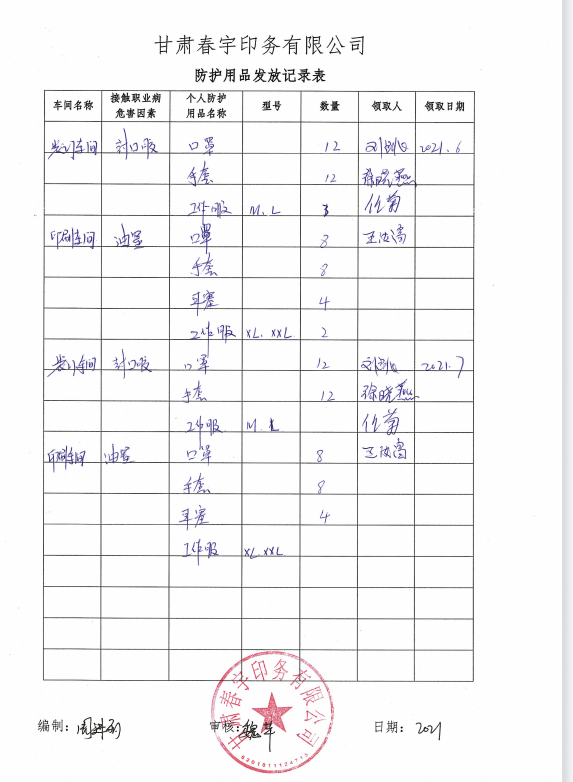 甘肃春宇印务有限公司
防护用品发放记录表
车间名称 接触职业病危害因素 个人防护用品名称 型号 数量 领取人 领取日期
装订车间 封口胶 口罩 12 2021.6
手套 12 徐晓燕
工作服 M.L 3 任菊
印刷车间 油墨 口罩 8
手套 8
耳塞 4
工作服 XL.XXL 2
装订车间 封口胶 口罩 12 2021.7
手套 12 徐晓燕
工作服 M.L 任菊
印刷车间 油墨 口罩 8
手套 8
耳塞 4
工作服 XL.XXL
甘肃春宇印务有限公司
编制: 审核: 日期: 2021